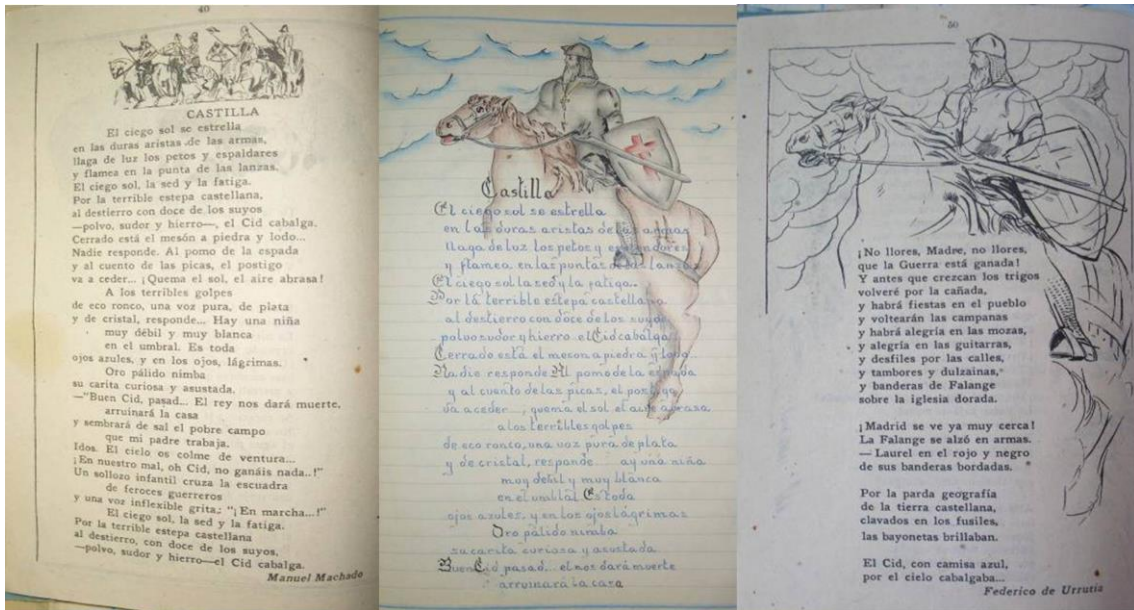 40
CASTILLA
El ciego sol se estrella
en las duras aristas de las armas,
llaga de luz los petos y espaldares
y flamea en la punta de las lanzas.
El ciego sol, la sed y la fatiga.
Por la terrible estepa castellana,
al destierro con doce de los suyos
—polvo, sudor y hierro—, el Cid cabalga.
Cerrado está el mesón a piedra y lodo...
Nadie responde. Al pomo de la espada
y al cuento de las picas, el postigo
va a ceder... ¡Quema el sol, el aire abrasa!
A los terribles golpes
de eco ronco, una voz pura, de plata
y de cristal, responde... Hay una niña
muy débil y muy blanca
en el umbral. Es toda
ojos azules, y en los ojos, lágrimas.
Oro pálido nimba
su carita curiosa y asustada.
—"Buen Cid, pasad... El rey nos dará muerte,
arruinará la casa
y sembrará de sal el pobre campo
que mi padre trabaja.
Idos. El cielo os colme de ventura...
¡En nuestro mal, oh Cid, no ganáis nada..!"
Un sollozo infantil cruza la escuadra
de feroces guerreros
y una voz inflexible grita: "¡En marcha...!"
El ciego sol, la sed y la fatiga.
Por la terrible estepa castellana
al destierro, con doce de los suyos,
—polvo, sudor y hierro—el Cid cabalga.
Manuel Machado
Castilla
El ciego sol se estrella
en las duras aristas de las armas
llaga de luz los petos y
y flamea en las puntas de las lanzas
El ciego sol la sed y la fatiga..
Por la terrible estepa castellana
al destierro con doce de los suyos
polvo sudor y hierro el Cid cabalga
Cerrado está el mecon a piedra y lodo
Nadie responde Al pomo de la espada
y al cuento de las picas, el postigo
va a ceder... ¡quema el sol el aire abrasa
a los terribles golpes
de eco ronco, una voz pura de plata
y de cristal, responde.... ay una niña
muy debil y muy blanca
en el Es toda
ojos azules, y en los ojos lágrimas
Oro pálido nimba
su carita curiosa y asustada
Buen Cid pasad... el nos dará muerte
arruinará la casa
50
¡No llores, Madre, no llores,
que la Guerra está ganada!
Y antes que crezcan los trigos
volveré por la cañada,
y habrá fiestas en el pueblo
y voltearán las campanas
y habrá alegría en las mozas,
y alegría en las guitarras,
y desfiles por las calles,
y tambores y dulzainas,
y banderas de Falange
sobre la iglesia dorada.
¡Madrid se ve ya muy cerca!
La Falange se alzó en armas.
— Laurel en el rojo y negro
de sus banderas bordadas.
Por la parda geografía
de la tierra castellana,
clavados en los fusiles,
las bayonetas brillaban.
El Cid, con camisa azul,
por el cielo cabalgaba...
Federico de Urrutia